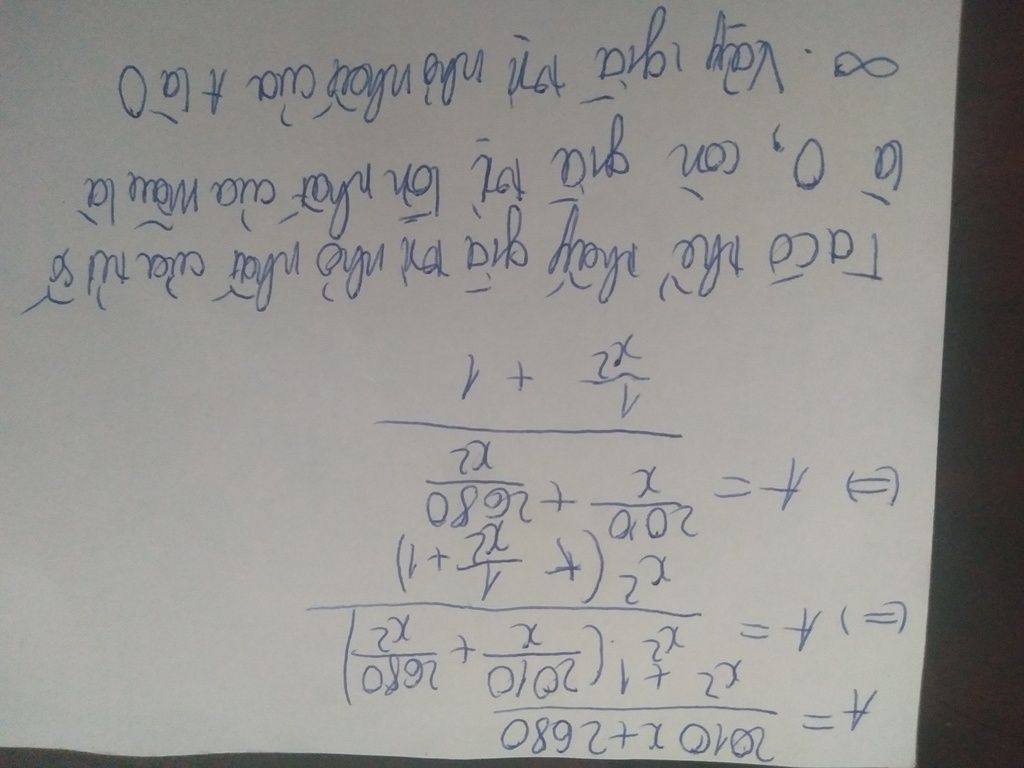 A = \frac{2010x + 2680}{x^2 + 1}
(=) A = \frac{x^2 \cdot (\frac{2010}{x} + \frac{2680}{x^2})}{x^2 (\frac{1}{x^2} + 1)}
(=) A = \frac{\frac{2010}{x} + \frac{2680}{x^2}}{\frac{1}{x^2} + 1}
Ta có thể thấy giá trị nhỏ nhất của tử số
là 0, còn giá trị lớn nhất của mẫu là
∞. Vậy giá trị nhỏ nhất của A là 0